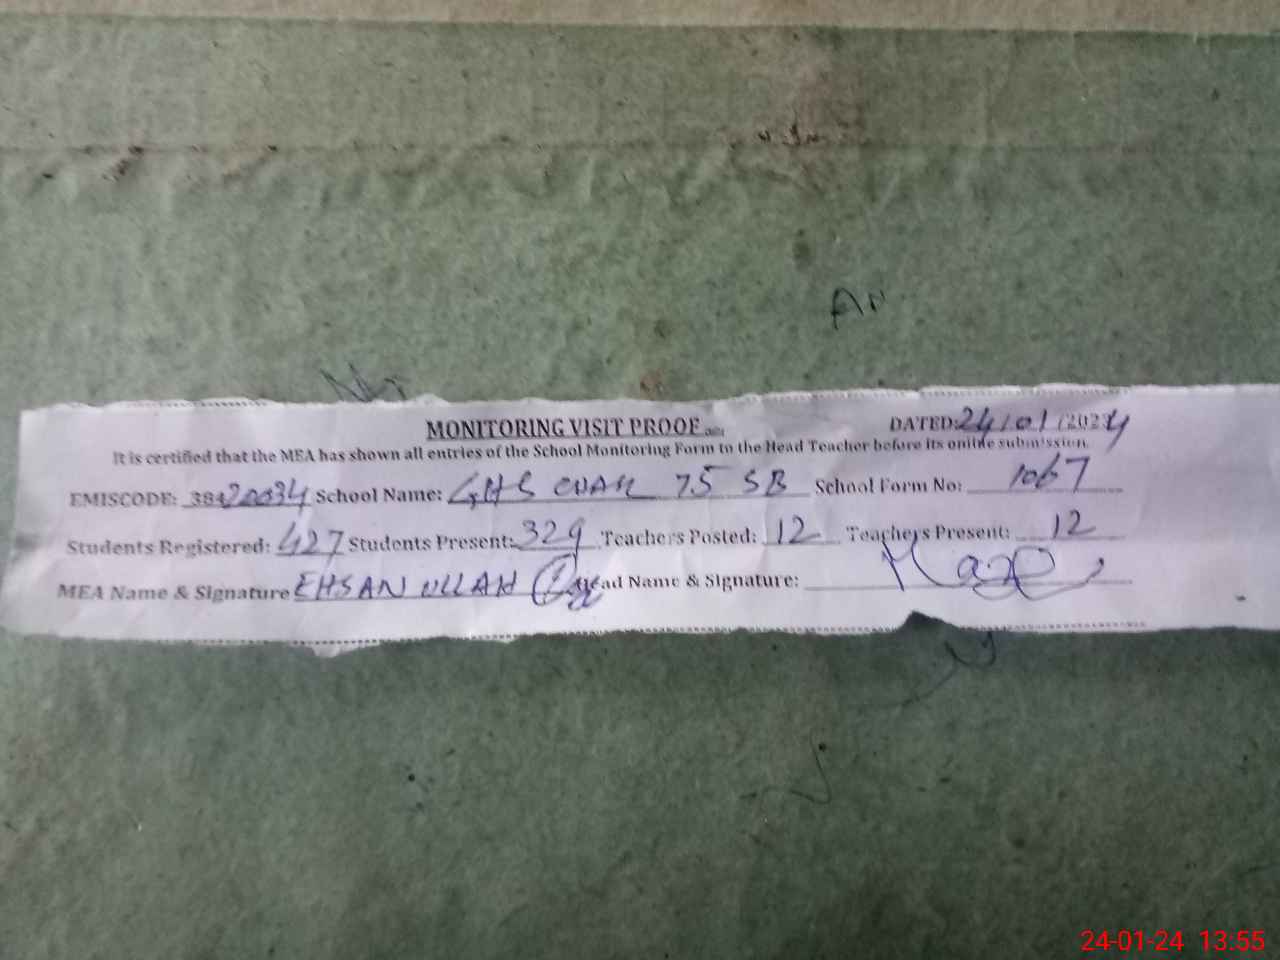 An
MONITORING VISIT PROOF DATED: 24/01/2024
It is certified that the MEA has shown all entries of the School Monitoring Form to the Head Teacher before its online submission.
EMISCODE: 38420034 School Name: GHS CHAK 75 SB School Form No: 1067
Students Registered: 427 Students Present: 329 Teachers Posted: 12 Teachers Present: 12
MEA Name & Signature EHSAN ULLAH Head Name & Signature:
24-01-24 13:55